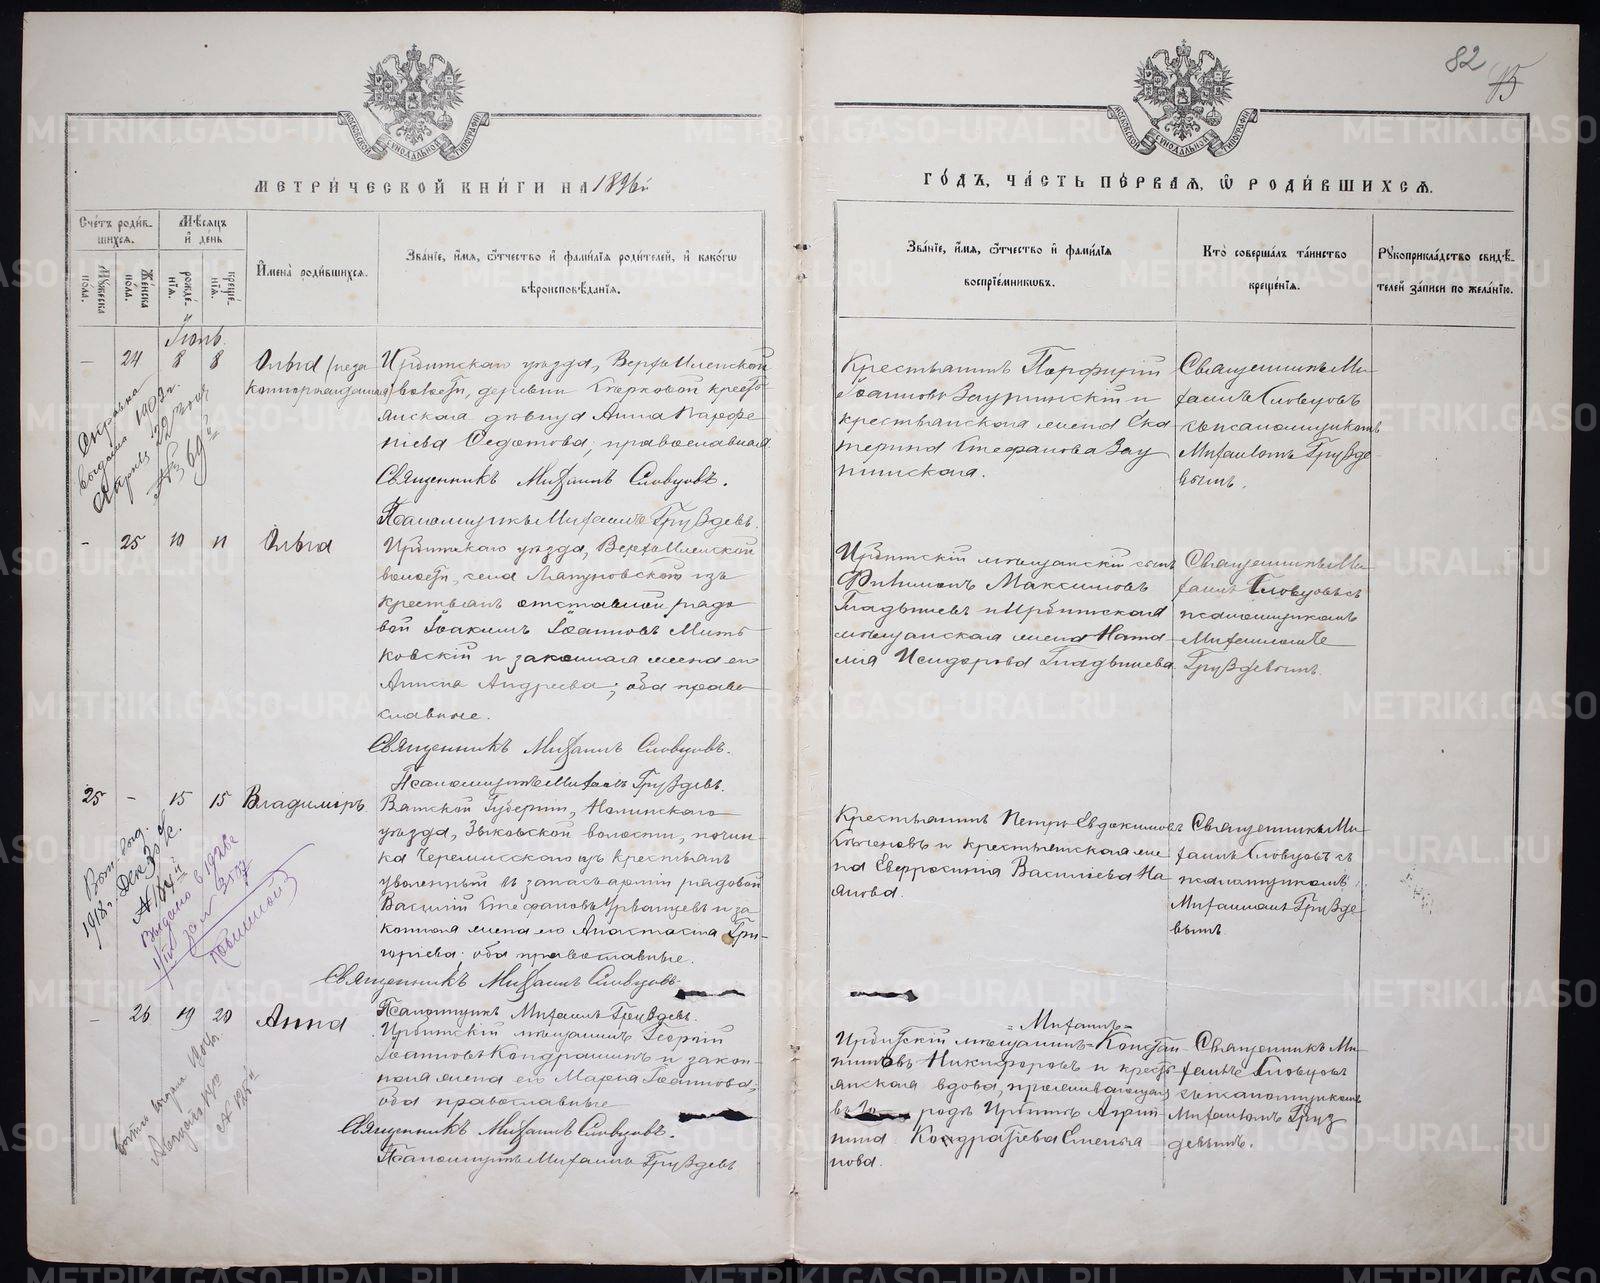 82
15
МОСКОВСКОЙ СУНОДАЛЬНОЙ ТИПОГРАФІИ
МОСКОВСКОЙ СУНОДАЛЬНОЙ ТИПОГРАФІИ
МЕТРИ́ЧЕСКОЙ КНИ́ГИ НА 1896й
ГО́ДЪ, ЧА́СТЬ ПЕ́РВАЯ, Ѿ РОДИ́ВШИХСѦ.
Сче́тъ роди́в-
шихсѧ.
Мѣ́сѧцъ
и҆ день
Мꙋжеска по́ла.
Же́нска по́ла.
рожде́-
нїѧ.
креще́-
нїѧ.
И҆мена̀ роди́вшихсѧ.
Зва́нїе, и҆́мѧ, ѻ҆́тчество и҆ фами́лїѧ роди́телей, и҆ како́гѡ
вѣроисповѣ́данїѧ.
Зва́нїе, и҆́мѧ, ѻ҆́тчество и҆ фами́лїѧ
воспрїе́мникѡвъ.
Кто̀ соверша́лъ та́инство
креще́нїѧ.
Рꙋкоприкла́дство свидѣ́-
телей за́писи по жела́нїю.
Іюль.
— 24 8 8 Ольга /неза
коннорожденная/
Ирбитскаго уѣзда, Верхъ Иленской
волости, деревни Боярковой кресть
янская дѣвица Анна Парфе
ніева Федотова, православная
Священникъ Михаилъ Словцовъ.
Псаломщикъ Михаилъ Груздевъ.
Крестьянинъ Порфирій
Іоанновъ Зауринскій и
крестьянская жена Ека
терина Стефанова Зау
ринская.
Священникъ Ми-
хаилъ Словцовъ
съ псаломщикомъ
Михаиломъ Грузде-
вымъ.
выдана 1902 г.
№ 69
- 25 10 11 Ольга
Ирбитскаго уѣзда, Верхъ Иленской
волости, села Ляпуновскаго изъ
крестьянъ отставной рядо
вой Іоакимъ Іоанновъ Мить
ковскій и законная жена его
Анисія Андреева; оба право
славные.
Священникъ Михаилъ Словцовъ.
Псаломщикъ Михаилъ Груздевъ.
Ирбитскій мѣщанскій сынъ
Филимонъ Максимовъ
Гладышевъ и Ирбитская
мѣщанская жена Ната
лія Исидорова Гладышева.
Священникъ Ми-
хаилъ Словцовъ съ
псаломщикомъ
Михаиломъ
Груздевымъ.
25 - 15 15 Владиміръ
Вятской Губерніи, Нолинскаго
уѣзда, Зыковской волости, почин-
ка Черемисскаго изъ крестьянъ
уволенный въ запасъ арміи рядовой
Василій Стефановъ Урванцевъ и за
конная жена его Анастасія Гри-
горіева; оба православные.
Священникъ Михаилъ Словцовъ
Псаломщикъ Михаилъ Груздевъ.
Крестьянинъ Петръ Евдокимовъ
и крестьянская же
на Евфросинія Василіева
Священникъ Ми-
хаилъ Словцовъ съ
псаломщикомъ
Михаиломъ Грузде
вымъ
1918 г. Дек.
№ 164
Выдано в 1926 г.
- 26 19 20 Анна
Ирбитскій мѣщанинъ Георгій
Іоанновъ Кондрашинъ и закон-
ная жена его Марія Іоаннова,
оба православные
Священникъ Михаилъ Словцовъ.
Псаломщикъ Михаилъ Груздевъ
= Михаилъ =
Ирбитскій мѣщанинъ = Констан
тиновъ Никифоровъ и кресть
янская вдова, проживающая
въ го родѣ Ирбитѣ Агрип
пина Кондратіева Степа
нова.
Священникъ Ми-
хаилъ Словцовъ
съ псаломщикомъ
Михаиломъ Груз
девымъ.
METRIKI.GASO-URAL.RU